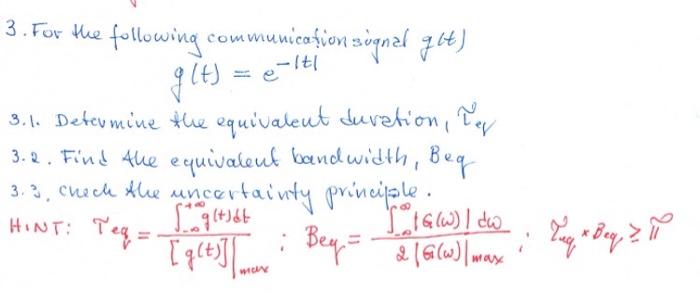 3. For the following communication signal g(t)
g(t) = e^{-|t|}
3.1. Determine the equivalent duration, τ_eq
3.2. Find the equivalent bandwidth, B_eq
3.3. Check the uncertainty principle.
HINT: τ_eq = ∫_{-∞}^{+∞} g(t)dt / [g(t)]|_max ; B_eq = ∫_{-∞}^{∞} |G(ω)| dω / 2|G(ω)|_max ; τ_eq * B_eq ≥ π